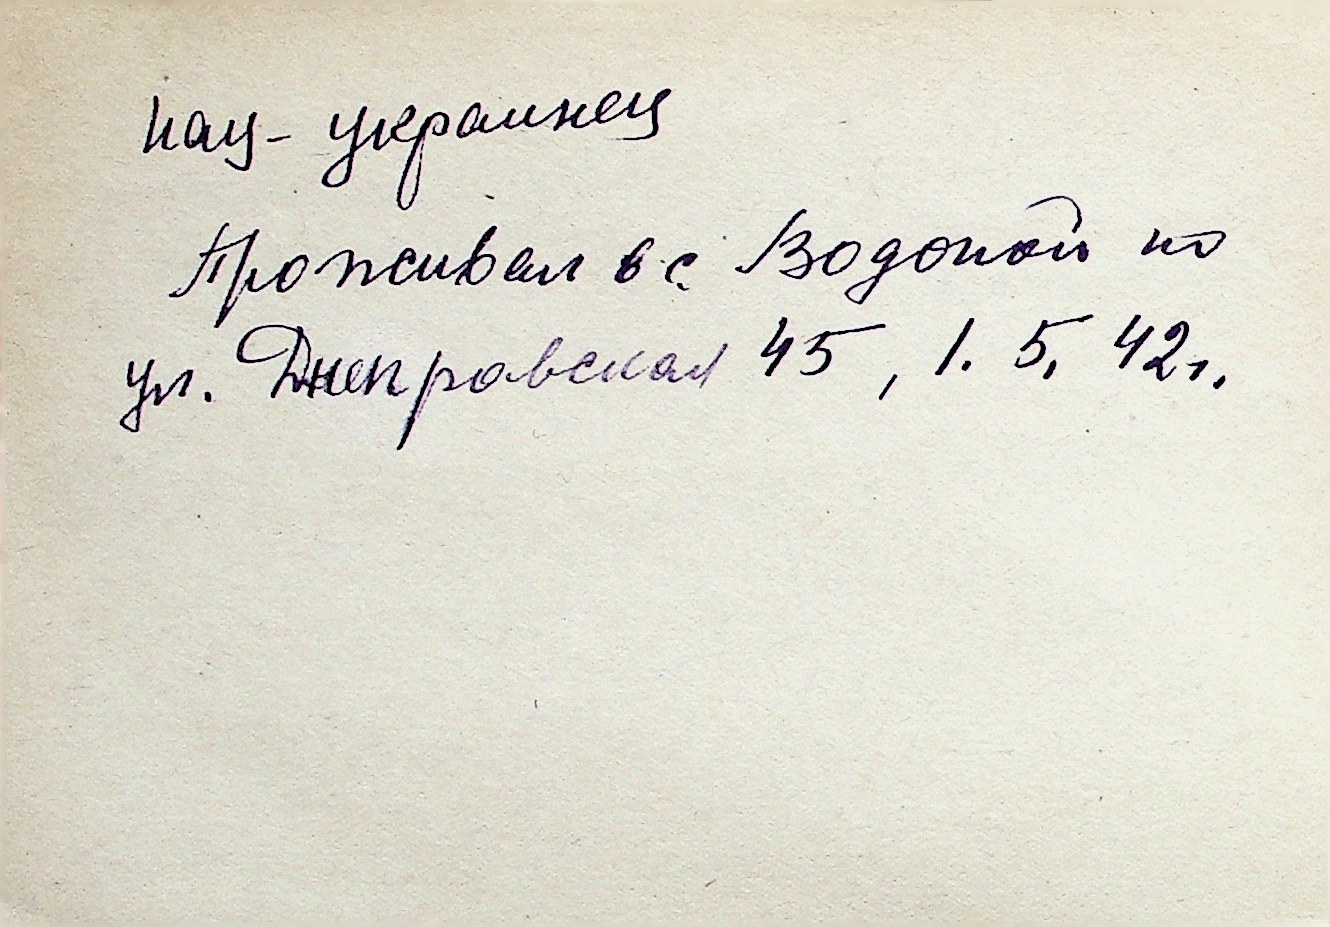 нац- украинец
Проживал в с. Водопой по
ул. Днепровская 45, 1. 5. 42г.